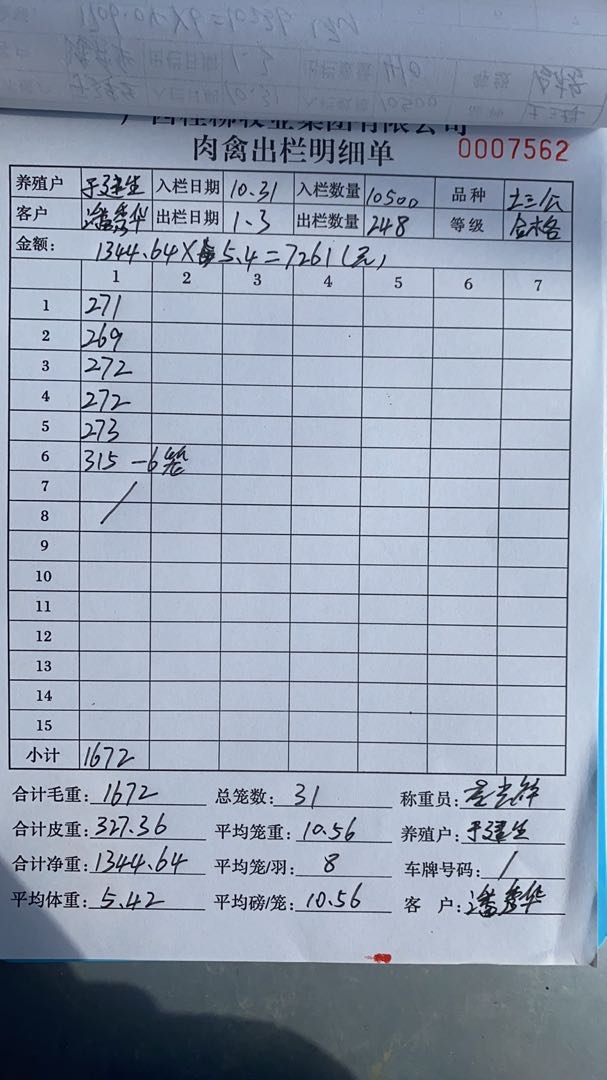 肉禽出栏明细单 0007562
养殖户 于建生 入栏日期 10.31 入栏数量 10500 品种 土三公
客户 潘秀华 出栏日期 1.3 出栏数量 248 等级 合格
金额: 1344.64X 5.4=7261(元)
1 2 3 4 5 6 7
1 271
2 269
3 272
4 272
5 273
6 315 -6笼
7
8
9
10
11
12
13
14
15
小计 1672
合计毛重: 1672 总笼数: 31 称重员:
合计皮重: 327.36 平均笼重: 10.56 养殖户: 于建生
合计净重: 1344.64 平均笼/羽: 8 车牌号码: /
平均体重: 5.42 平均磅/笼: 10.56 客 户: 潘秀华